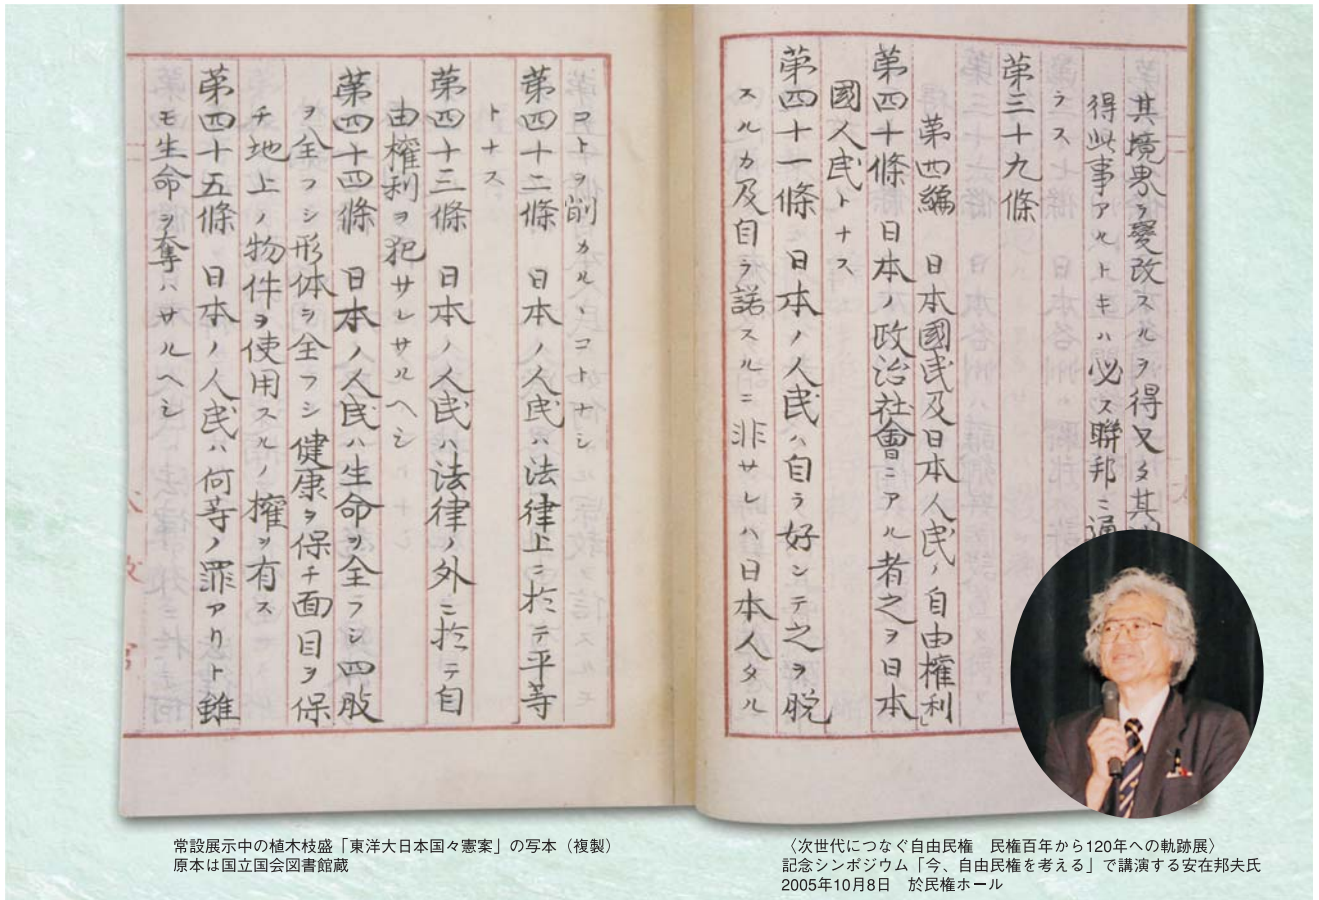 其境界ヲ變改スルヲ得又タ其
得此事アルトキハ必ス聯邦ニ通
ラス
第三十九條
第四編　日本國民及日本人民ノ自由權利
第四十條　日本ノ政治社會ニアル者之ヲ日本
國人民トナス
第四十一條　日本ノ人民ハ自ラ好ンテ之ヲ脱
スルカ及自ラ諾スルニ非サレハ日本人タル
コトヲ削カルヽコトナシ
第四十二條　日本ノ人民ハ法律上ニ於テ平等
トナス
第四十三條　日本ノ人民ハ法律ノ外ニ於テ自
由權利ヲ犯サレサルヘシ
第四十四條　日本ノ人民ハ生命ヲ全フシ四肢
ヲ全フシ形体ヲ全フシ健康ヲ保チ面目ヲ保
チ地上ノ物件ヲ使用スルノ權ヲ有ス
第四十五條　日本ノ人民ハ何等ノ罪アリト雖
モ生命ヲ奪ハサルヘシ
常設展示中の植木枝盛「東洋大日本国々憲案」の写本（複製）
原本は国立国会図書館蔵
〈次世代につなぐ自由民権　民権百年から120年への軌跡展〉
記念シンポジウム「今、自由民権を考える」で講演する安在邦夫氏
2005年10月8日　於民権ホール